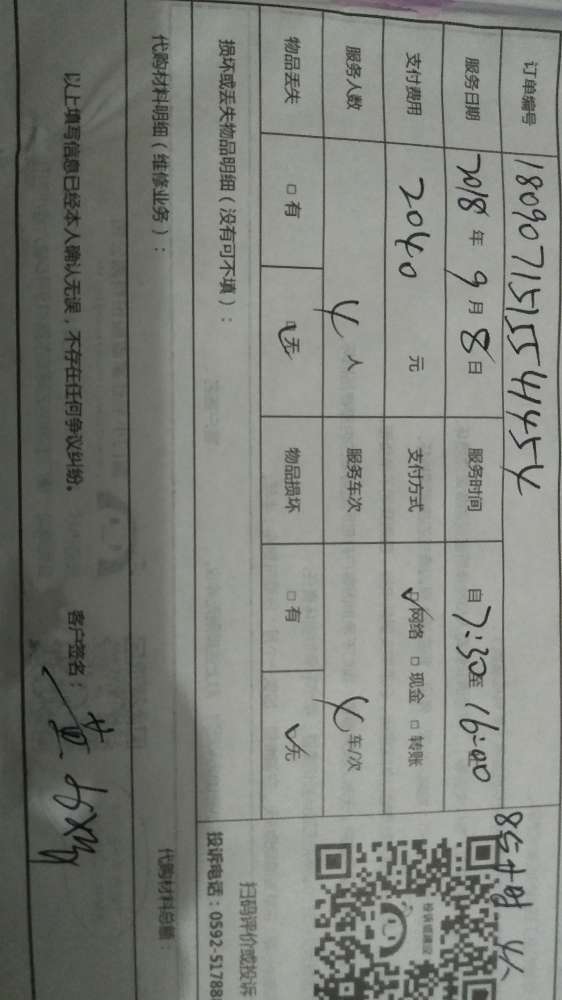 订单编号 1809071515541454
服务日期 2018年9月8日 服务时间 自7:30至16:00
支付费用 2040元 支付方式 网络 □现金 □转账
服务人数 4人 服务车次 4车/次
物品丢失 □有 无 物品损坏 □有 无
损坏或丢失物品明细(没有可不填):
投诉或建议
扫码评价或投诉
投诉电话:0592-517888
代购材料明细(维修业务): 代购材料总额:
以上填写信息已经本人确认无误,不存在任何争议纠纷。 客户签名: